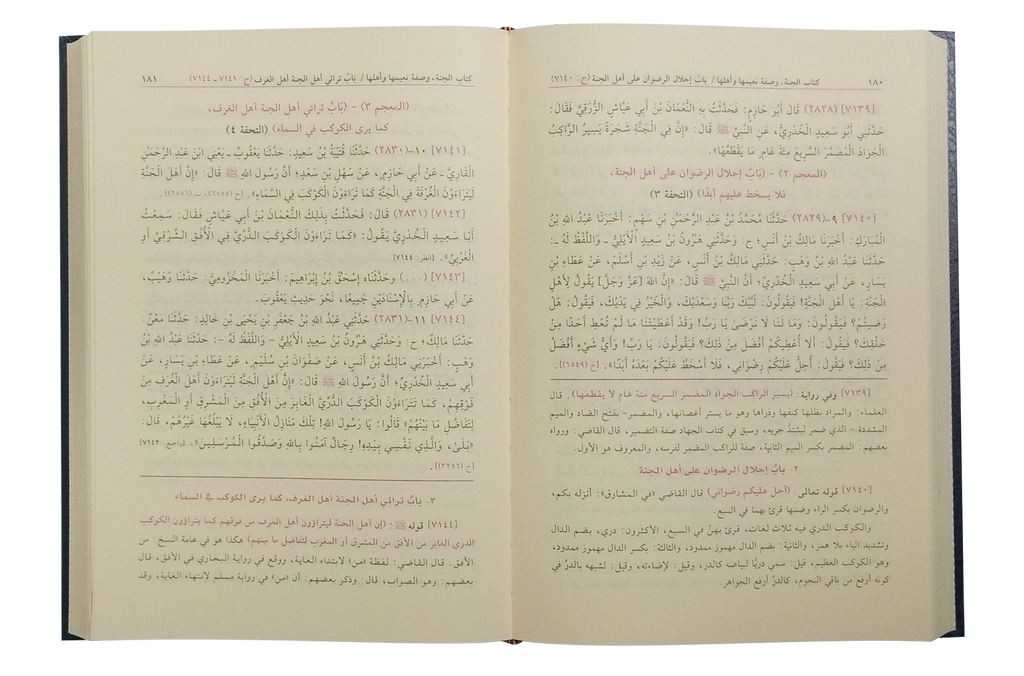 ١٨٠ كتاب الجنة، وصفة نعيمها وأهلها / بَابُ إحلال الرضوان على أهل الجنة (ح: ٧١٤٠)
[٧١٣٩] (٢٨٢٨) قَالَ أَبُو حَازِمٍ: فَحَدَّثْتُ بِهِ النُّعْمَانَ بْنَ أَبِي عَيَّاشٍ الزُّرَقِيَّ فَقَالَ:
حَدَّثَنِي أَبُو سَعِيدٍ الْخُدْرِيُّ، عَنِ النَّبِيِّ ﷺ قَالَ: «إِنَّ فِي الْجَنَّةِ شَجَرَةً يَسِيرُ الرَّاكِبُ
الْجَوَادَ الْمُضَمَّرَ السَّرِيعَ مِئَةَ عَامٍ مَا يَقْطَعُهَا».
(المعجم ٢) - (بَابُ إحلال الرضوان على أهل الجنة،
فلا يسخط عليهم أبدًا) (التحفة ٣)
[٧١٤٠] ٩-(٢٨٢٩) حَدَّثَنَا مُحَمَّدُ بْنُ عَبْدِ الرَّحْمٰنِ بْنِ سَهْمٍ: أَخْبَرَنَا عَبْدُ اللهِ بْنُ
الْمُبَارَكِ: أَخْبَرَنَا مَالِكُ بْنُ أَنَسٍ؛ ح: وَحَدَّثَنِي هٰرُونُ بْنُ سَعِيدٍ الْأَيْلِيُّ - وَاللَّفْظُ لَهُ -:
حَدَّثَنَا عَبْدُ اللهِ بْنُ وَهْبٍ: حَدَّثَنِي مَالِكُ بْنُ أَنَسٍ، عَنْ زَيْدِ بْنِ أَسْلَمَ، عَنْ عَطَاءِ بْنِ
يَسَارٍ، عَنْ أَبِي سَعِيدٍ الْخُدْرِيِّ؛ أَنَّ النَّبِيَّ ﷺ قَالَ: «إِنَّ اللهَ [عَزَّ وَجَلَّ] يَقُولُ لِأَهْلِ
الْجَنَّةِ: يَا أَهْلَ الْجَنَّةِ! فَيَقُولُونَ: لَبَّيْكَ رَبَّنَا وَسَعْدَيْكَ، وَالْخَيْرُ فِي يَدَيْكَ، فَيَقُولُ: هَلْ
رَضِيتُمْ؟ فَيَقُولُونَ: وَمَا لَنَا لَا نَرْضَىٰ يَا رَبِّ! وَقَدْ أَعْطَيْتَنَا مَا لَمْ تُعْطِ أَحَدًا مِنْ
خَلْقِكَ؟ فَيَقُولُ: أَلَا أُعْطِيكُمْ أَفْضَلَ مِنْ ذٰلِكَ؟ فَيَقُولُونَ: يَا رَبِّ! وَأَيُّ شَيْءٍ أَفْضَلُ
مِنْ ذٰلِكَ؟ فَيَقُولُ: أُحِلُّ عَلَيْكُمْ رِضْوَانِي، فَلَا أَسْخَطُ عَلَيْكُمْ بَعْدَهُ أَبَدًا». [خ (٦٥٤٩)].
[٧١٣٩] وفي رواية: (يسير الراكب الجواد المضمر السريع مئة عام لا يقطعها). قال
العلماء: والمراد بظلها كنفها وذراها وهو ما يستر أغصانها، والمضمر- بفتح الضاد والميم
المشددة - الذي ضمر ليشتد جريه، وسبق في كتاب الجهاد صفة التضمير، قال القاضي: ورواه
بعضهم: المضمر بكسر الميم الثانية، صفة للراكب المضمر لفرسه، والمعروف هو الأول.
٢- باب إحلال الرضوان على أهل الجنة
[٧١٤٠] قوله تعالى: (أحل عليكم رضواني) قال القاضي «في المشارق»: أنزله بكم،
والرضوان بكسر الراء وضمها قرئ بهما في السبع.
والكوكب الدري فيه ثلاث لغات، قرئ بهنَّ في السبع، الأكثرون: دري، بضم الدال
وتشديد الياء بلا همز، والثانية: بضم الدال مهموز ممدود، والثالثة: بكسر الدال مهموز ممدود،
وهو الكوكب العظيم، قيل: سمي دريًّا لبياضه كالدر، وقيل: لإضاءته، وقيل: لشبهه بالدرِّ في
كونه أرفع من باقي النجوم، كالدرِّ أرفع الجواهر.
كتاب الجنة، وصفة نعيمها وأهلها / بَابُ ترائي أهل الجنة أهل الغرف (ح ٧١٤١-٧١٤٤) ١٨١
(المعجم ٣) - (بَابُ ترائي أهل الجنة أهل الغرف،
كما يرى الكوكب في السماء) (التحفة ٤)
[٧١٤١] ١٠-(٢٨٣٠) حَدَّثَنَا قُتَيْبَةُ بْنُ سَعِيدٍ: حَدَّثَنَا يَعْقُوبُ - يَعْنِي ابْنَ عَبْدِ الرَّحْمٰنِ
الْقَارِيَّ - عَنْ أَبِي حَازِمٍ، عَنْ سَهْلِ بْنِ سَعْدٍ؛ أَنَّ رَسُولَ اللهِ ﷺ قَالَ: «إِنَّ أَهْلَ الْجَنَّةِ
لَيَتَرَاءَوْنَ الْغُرْفَةَ فِي الْجَنَّةِ كَمَا تَرَاءَوْنَ الْكَوْكَبَ فِي السَّمَاءِ». [خ (٦٥٥٥)، ت (٢٥٥٦)].
[٧١٤٢] (٢٨٣١) قَالَ: فَحَدَّثْتُ بِذٰلِكَ النُّعْمَانَ بْنَ أَبِي عَيَّاشٍ فَقَالَ: سَمِعْتُ
أَبَا سَعِيدٍ الْخُدْرِيَّ يَقُولُ: «كَمَا تَرَاءَوْنَ الْكَوْكَبَ الدُّرِّيَّ فِي الْأُفُقِ الشَّرْقِيِّ أَوِ
الْغَرْبِيِّ». [انظر: ٧١٤٤]
[٧١٤٣] (...) وَحَدَّثَنَاهُ إِسْحٰقُ بْنُ إِبْرَاهِيمَ: أَخْبَرَنَا الْمَخْزُومِيُّ: حَدَّثَنَا وُهَيْبٌ،
عَنْ أَبِي حَازِمٍ بِالْإِسْنَادَيْنِ جَمِيعًا، نَحْوَ حَدِيثِ يَعْقُوبَ.
[٧١٤٤] ١١-(٢٨٣١) حَدَّثَنِي عَبْدُ اللهِ بْنُ جَعْفَرِ بْنِ يَحْيَى بْنِ خَالِدٍ: حَدَّثَنَا مَعْنٌ:
حَدَّثَنَا مَالِكٌ؛ ح: وَحَدَّثَنِي هٰرُونُ بْنُ سَعِيدٍ الْأَيْلِيُّ - وَاللَّفْظُ لَهُ -: حَدَّثَنَا عَبْدُ اللهِ بْنُ
وَهْبٍ: أَخْبَرَنِي مَالِكُ بْنُ أَنَسٍ، عَنْ صَفْوَانَ بْنِ سُلَيْمٍ، عَنْ عَطَاءِ بْنِ يَسَارٍ، عَنْ
أَبِي سَعِيدٍ الْخُدْرِيِّ؛ أَنَّ رَسُولَ اللهِ ﷺ قَالَ: «إِنَّ أَهْلَ الْجَنَّةِ لَيَتَرَاءَوْنَ أَهْلَ الْغُرَفِ مِنْ
فَوْقِهِمْ، كَمَا تَتَرَاءَوْنَ الْكَوْكَبَ الدُّرِّيَّ الْغَابِرَ مِنَ الْأُفُقِ مِنَ الْمَشْرِقِ أَوِ الْمَغْرِبِ،
لِتَفَاضُلِ مَا بَيْنَهُمْ» قَالُوا: يَا رَسُولَ اللهِ! تِلْكَ مَنَازِلُ الْأَنْبِيَاءِ، لَا يَبْلُغُهَا غَيْرُهُمْ، قَالَ:
«بَلَىٰ، وَالَّذِي نَفْسِي بِيَدِهِ! رِجَالٌ آمَنُوا بِاللهِ وَصَدَّقُوا الْمُرْسَلِينَ». [راجع: ٧١٤٢
[خ (٣٢٥٦)].
٣- باب ترائي أهل الجنة أهل الغرف، كما يرى الكوكب في السماء
[٧١٤٤] قوله ﷺ: (إن أهل الجنة ليتراؤون أهل الغرف من فوقهم كما يتراؤون الكوكب
الدري الغابر من الأفق من المشرق أو المغرب لتفاضل ما بينهم) هكذا هو في عامة النسخ: من
الأفق. قال القاضي: لفظة «من» لابتداء الغاية، ووقع في رواية البخاري في الأفق، قال
بعضهم: وهو الصواب، قال: وذكر بعضهم: أن «من» في رواية مسلم لانتهاء الغاية، وقد